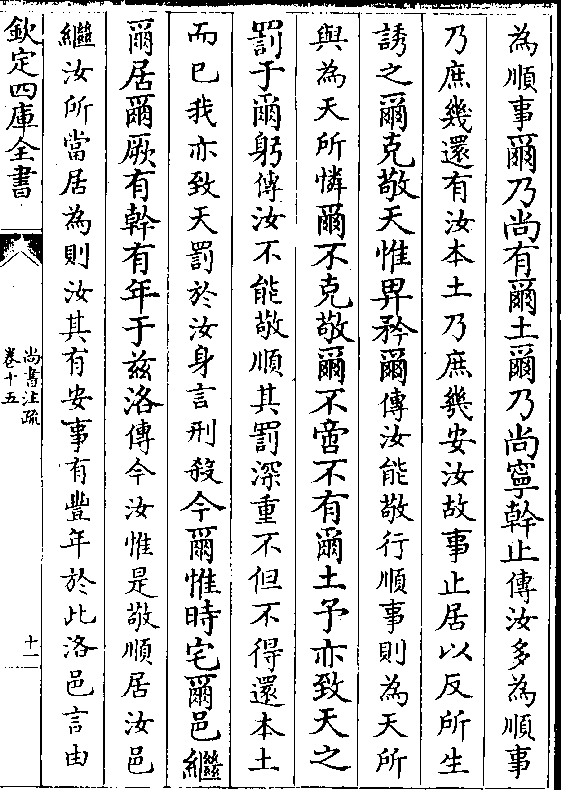 為順事爾乃尚有爾土爾乃尚寧幹止傳汝多為順事
乃庶幾還有汝本土乃庶幾安汝故事止居以反所生
誘之爾克敬天惟畀矜爾傳汝能敬行順事則為天所
與為天所憐爾不克敬爾不啻不有爾土予亦致天之
罰于爾躬傳汝不能敬順其罰深重不但不得還本土
而已我亦致天罰於汝身言刑殺今爾惟時宅爾邑繼
爾居爾厥有幹有年于兹洛傳今汝惟是敬順居汝邑
繼汝所當居為則汝其有安事有豐年於此洛邑言由
欽定四庫全書
尚書注疏
卷十五
十一